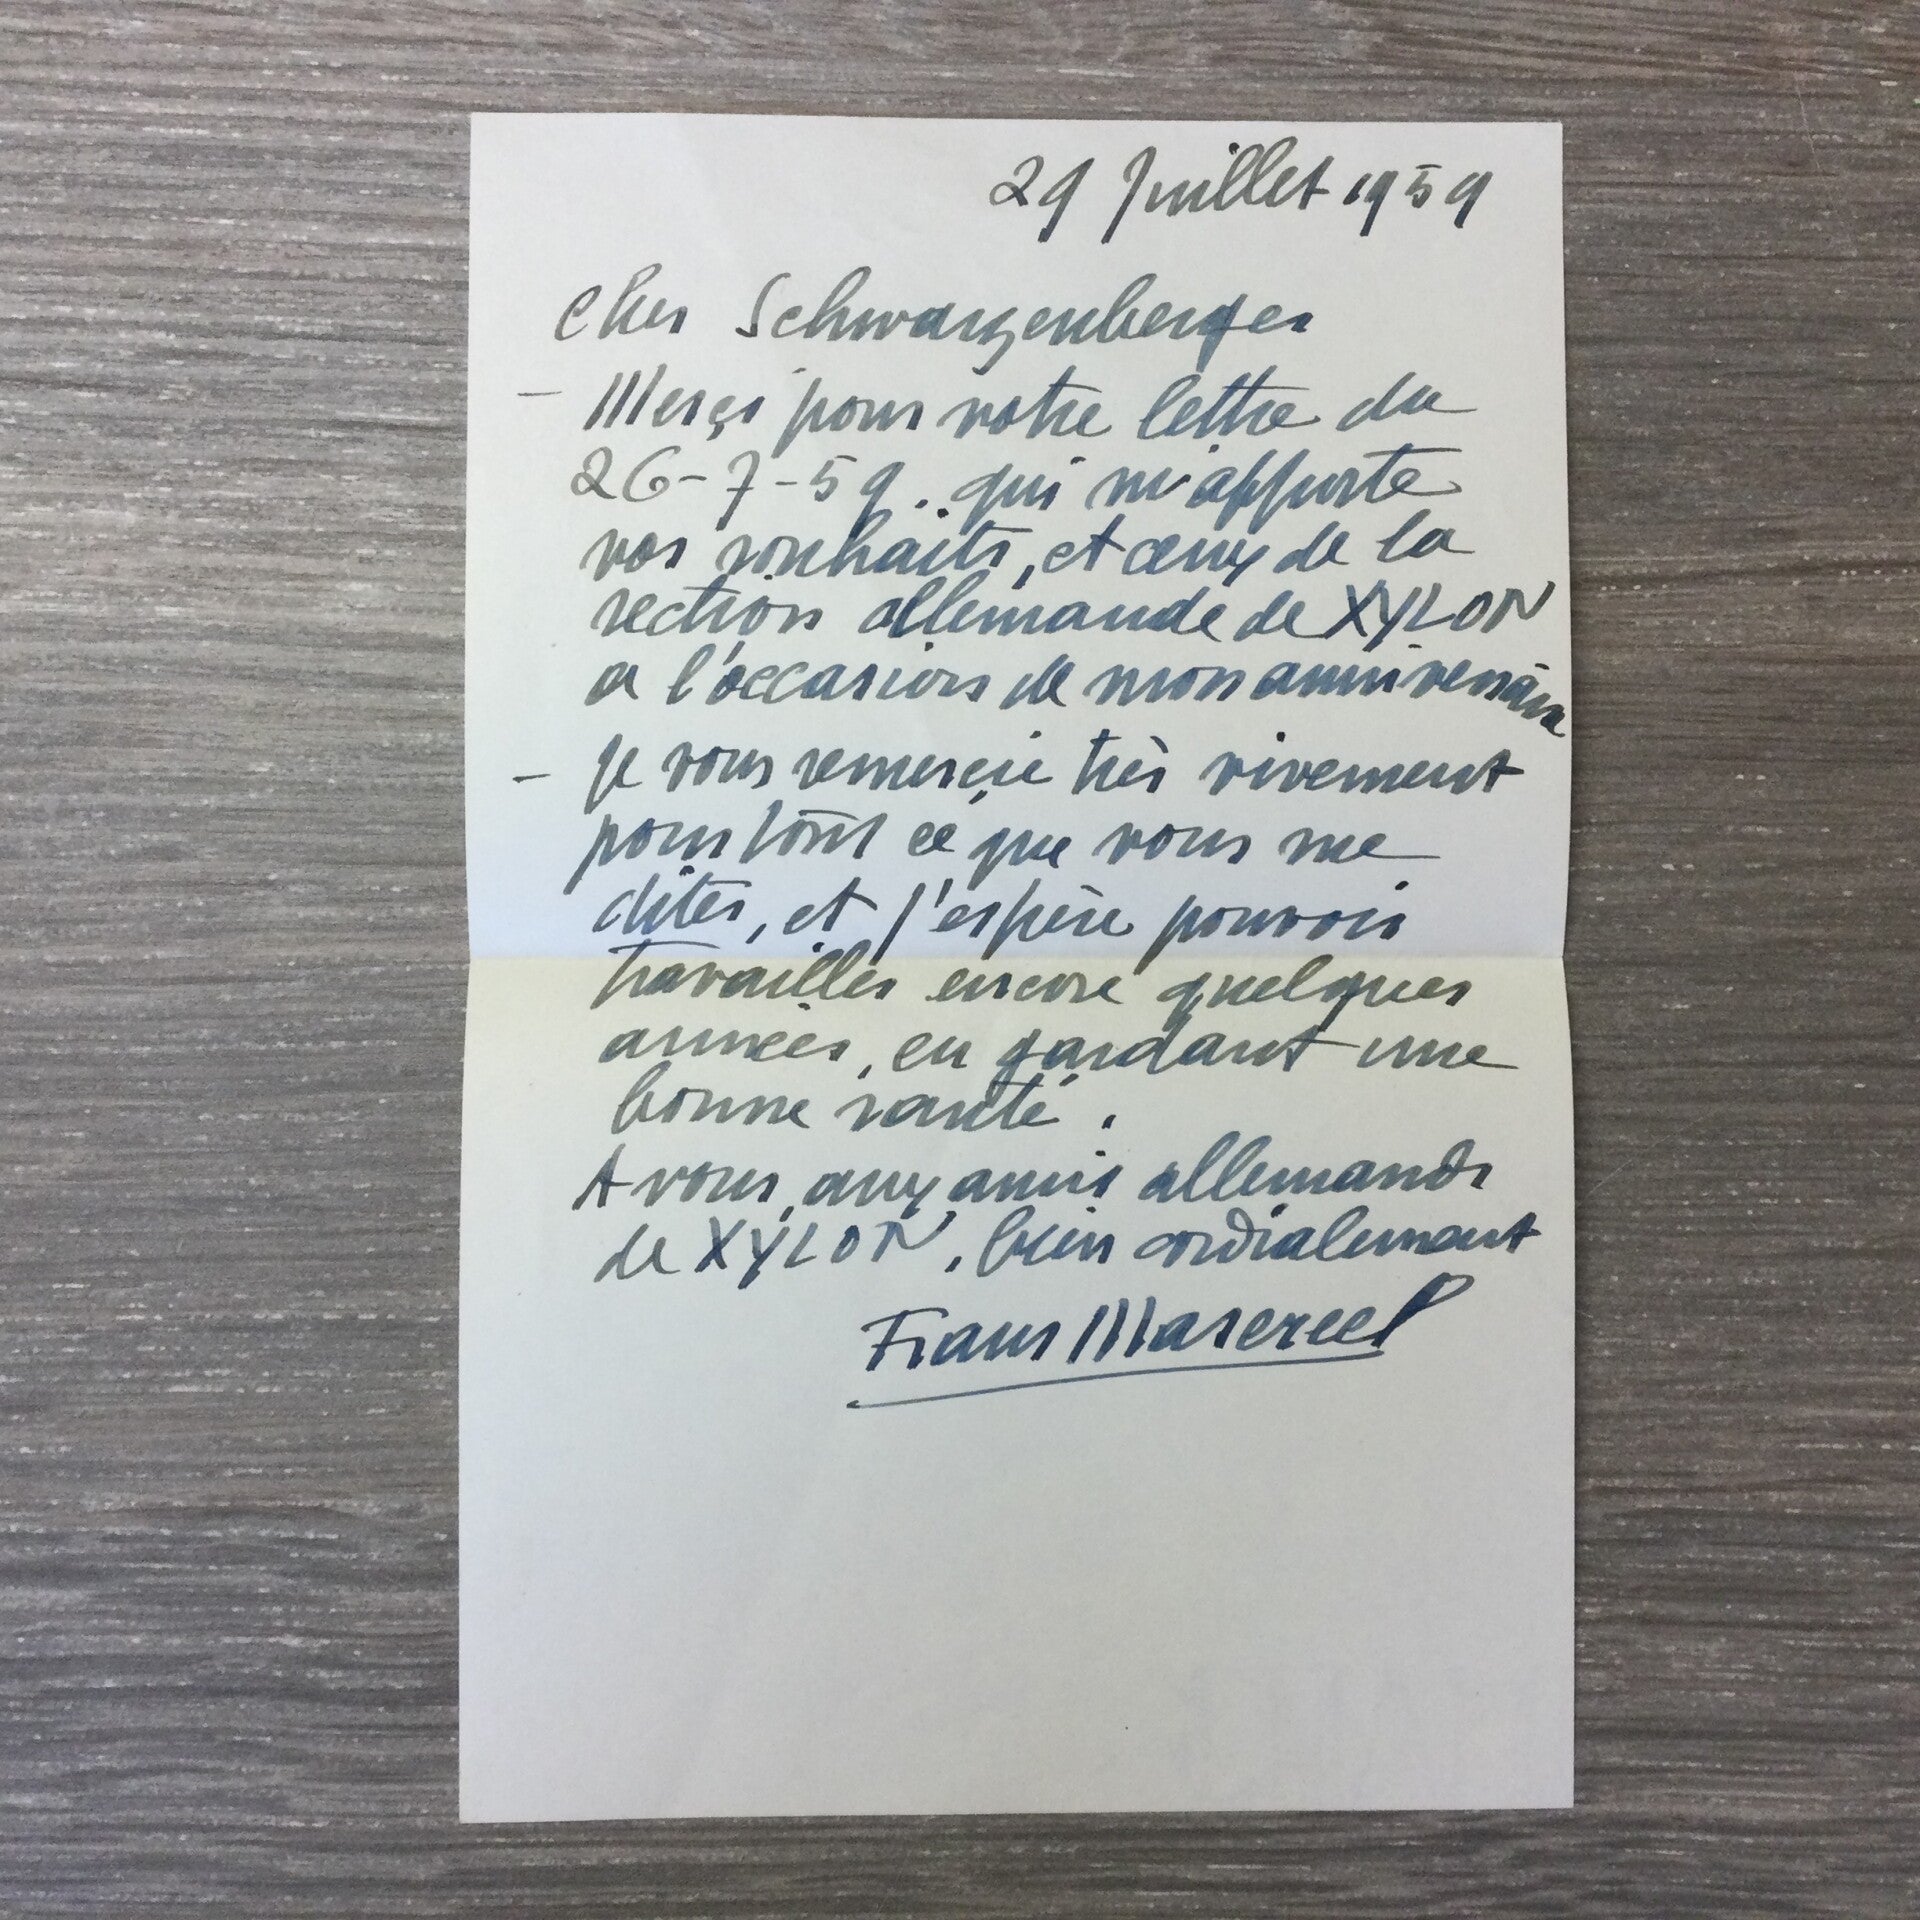 29 Juillet 1959
Cher Schwarzenberger
– Merçi pour votre lettre du
26-7-59. qui m'apporte
vos souhaits, et ceux de la
section allemande de XYLON
a l'occasion de mon anniversaire
– Je vous remerçie très vivement
pour tout ce que vous me
dites, et j'espère pouvoir
travailler encore quelques
années, en gardant une
bonne santé.
A vous, aux amis allemands
de XYLON, bien cordialement
Frans Masereel